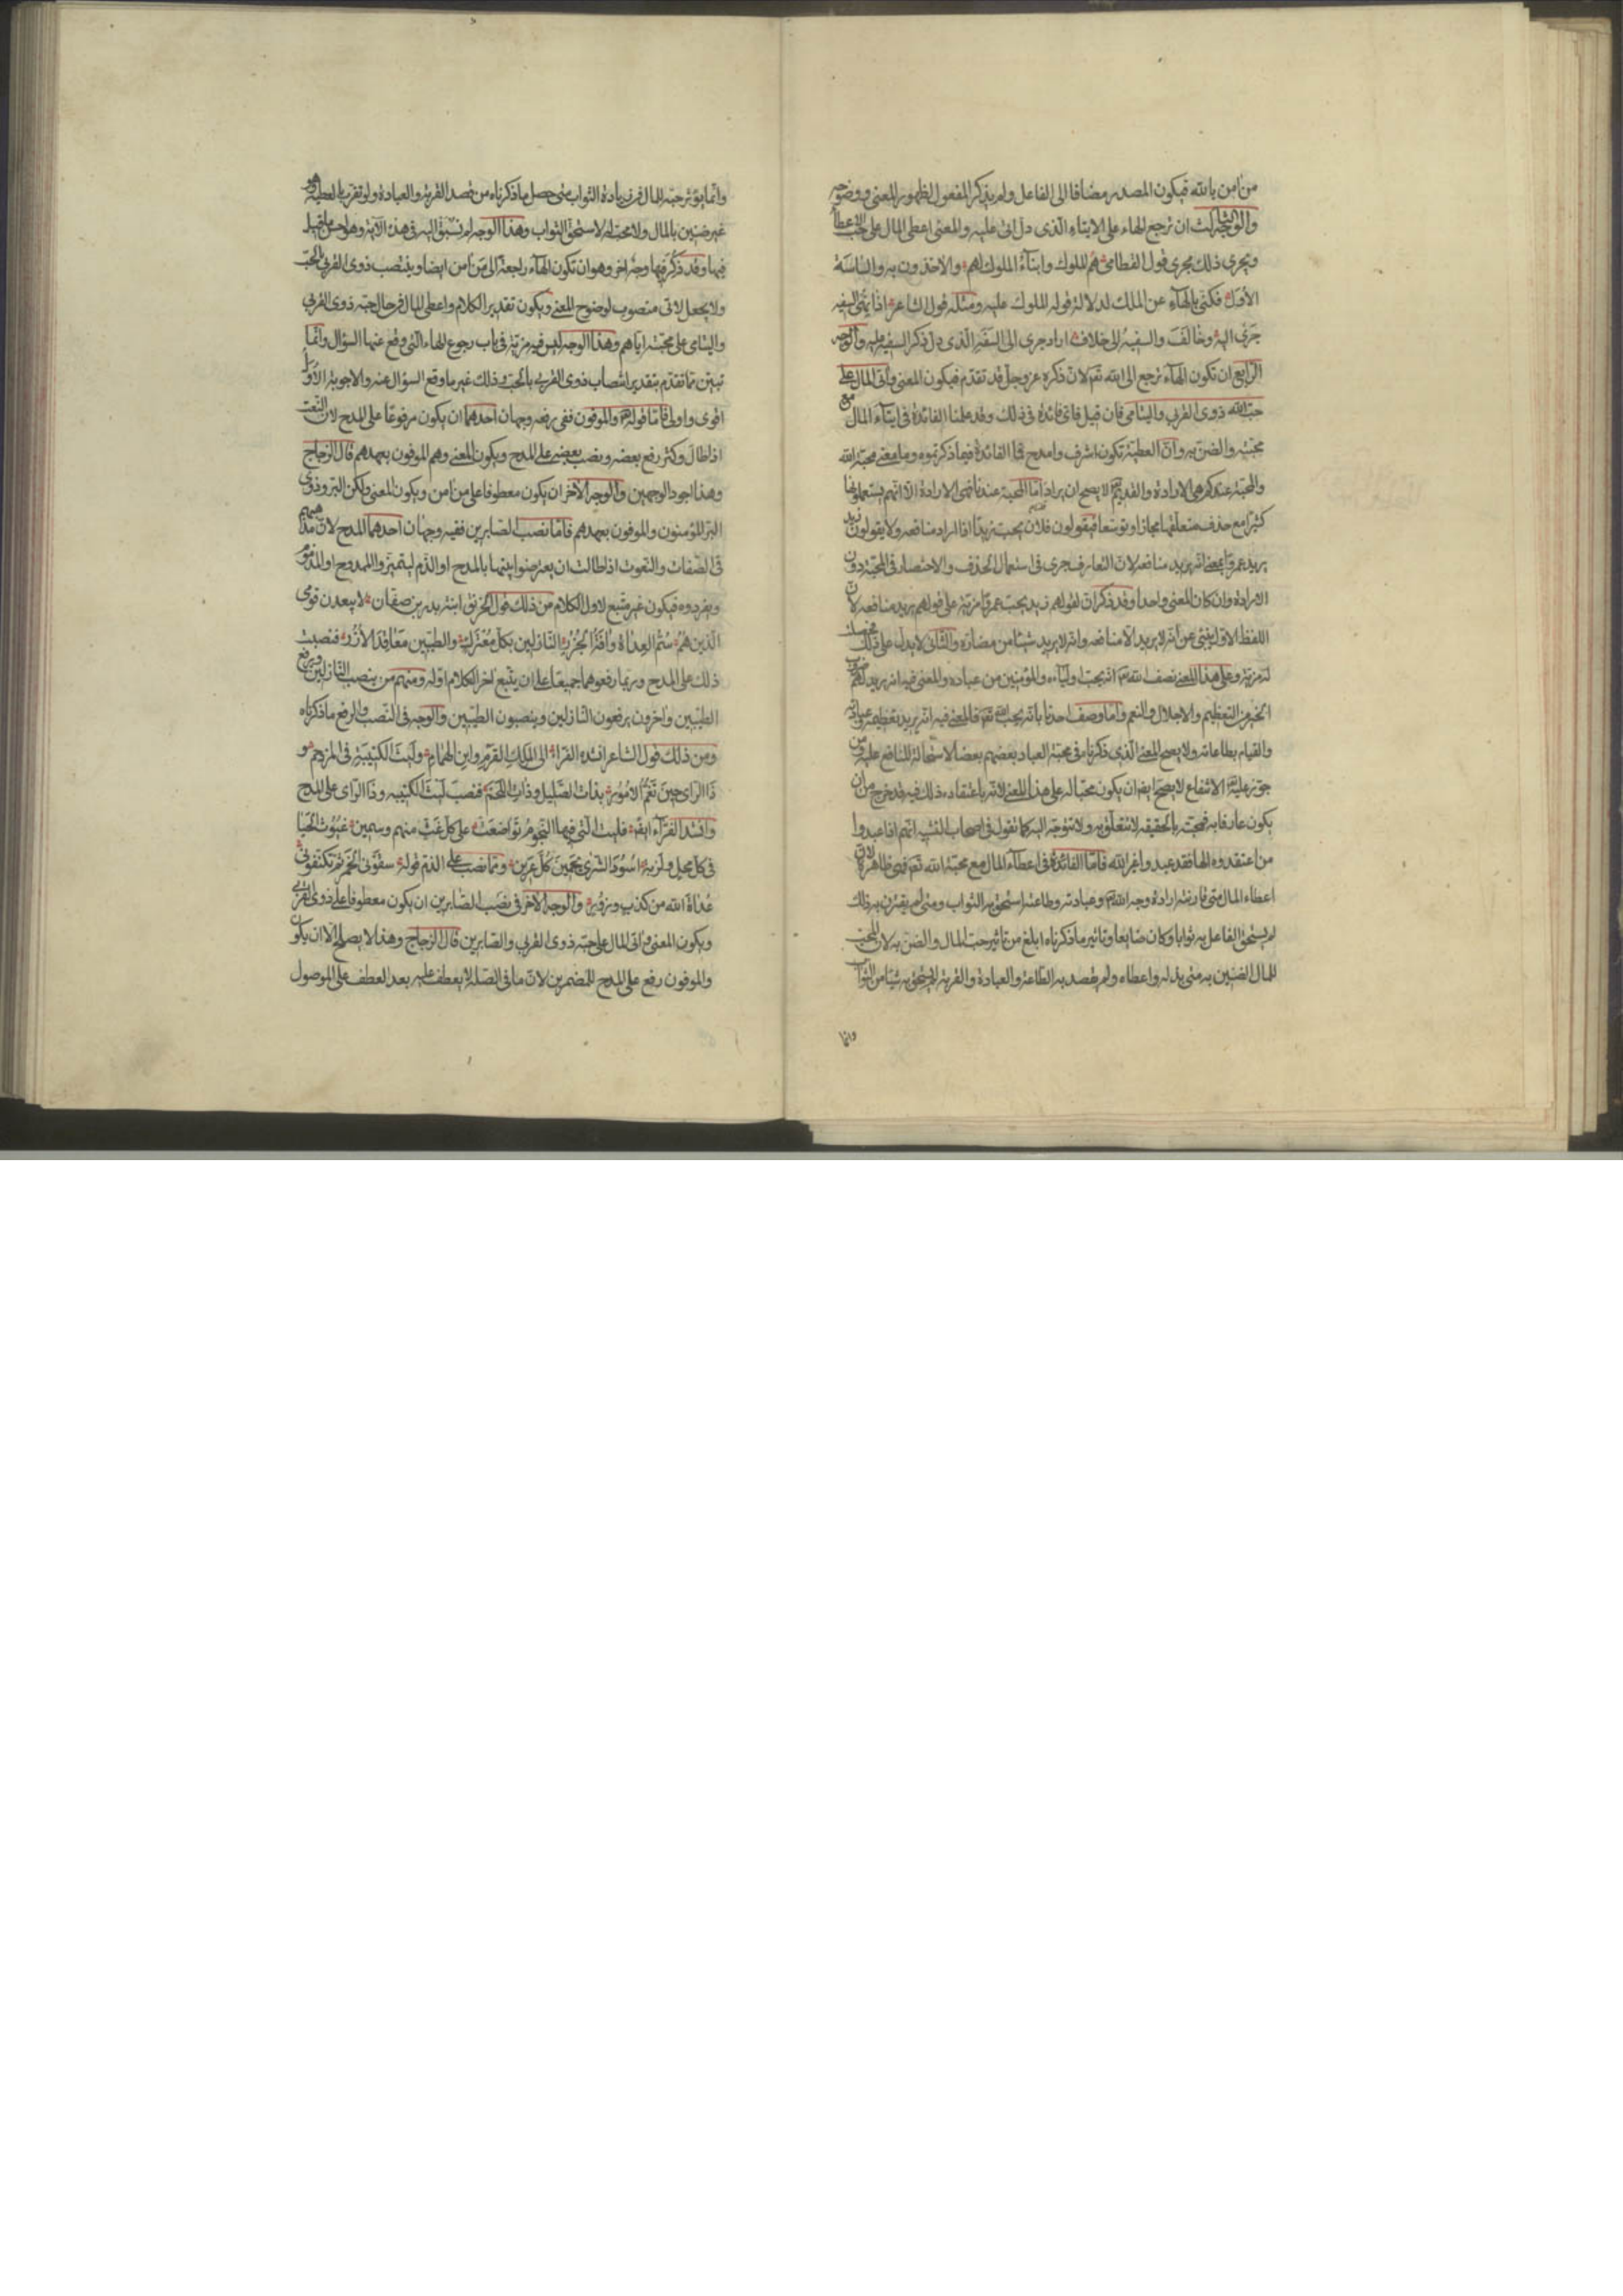 من امن بالله فيكون المصدر مضافا الى الفاعل ولم يذكر المفعول لظهور المعنى ووضوحه
والوجه الثالث ان ترجع الهاء على الايتاء الذى دل اتى عليه والمعنى اعطى المال على حب الاعطاء
ويجرى ذلك مجرى قول القطامى هم الملوك وابناء الملوك لهم والاخذون به والساسة
الأول فكنى بالهاء عن الملك لدلالة قوله الملوك عليه ومثله قول الشاعر اذا نهى السفيه
جرى اليه وخالف والسفيه الى خلاف اراد جرى الى السفه الذى دل ذكر السفيه عليه والوجه
الرابع ان تكون الهاء ترجع الى الله تعم لان ذكره عز وجل قد تقدم فيكون المعنى واتى المال على
حب الله ذوى القربى واليتامى فان قيل فاى فائدة فى ذلك وقد علمنا الفائدة فى ايتاء المال مع
محبته والضن به وان العطية تكون اشرف وامدح فما الفائدة فيما ذكرتموه وما معنى محبة الله
والمحبة عندكم هى الارادة والقديم تعم لا يصح ان يراد اما المحبة عندنا فهى الارادة الا انهم يستعملونها
كثيرا مع حذف متعلقها مجازا وتوسعا فيقولون فلان يحب زيدا اذا اراد منافعه ولا يقولون زيد
يريد عمرا بمعنى انه يريد منافعه لان التعارف جرى فى استعمال الحذف والاختصار فى المحبة دون
الارادة وان كان المعنى واحدا وقد ذكر ان لقولهم زيد يحب عمرا مزية على قولهم يريد منافعه لان
اللفظ الاول ينبئ عن انه لا يريد الا منافعه وانه لا يريد شيئا من مضاره والثانى لا يدل على ذلك فحصلت
له مزية وعلى هذا المعنى نصف الله تعم انه يحب اولياءه والمؤمنين من عباده والمعنى فيه انه يريد لهم ضروب
الخير من التعظيم والاجلال والنعم واما وصف احدنا بانه يحب الله تعم فالمعنى فيه انه يريد تعظيمه وعبادته
والقيام بطاعاته ولا يصح المعنى الذى ذكرناه فى محبة العباد بعضهم بعضا لاستحالة المنافع عليه ومن
جوز عليه تعم الانتفاع لا يصح ايضا ان يكون محبا له على هذا المعنى لانه باعتقاده ذلك فيه قد خرج من ان
يكون عارفا به فمحبته بالحقيقة لا تتعلق به ولا تتوجه اليه كما نقول فى اصحاب التشبيه انهم اذا عبدوا
من اعتقدوه الها فقد عبدوا غير الله فاما الفائدة فى اعطاء المال مع محبة الله تعم فهى ظاهرة لان
اعطاء المال متى قارنته ارادة وجه الله تعم وعبادته وطاعته استحق به الثواب ومتى لم يقترن به ذلك
لم يستحق الفاعل به ثوابا وكان ضايعا وتاثير ما ذكرناه ابلغ من تاثير حب المال والضن به لان المحب
للمال الضنين به متى بذله واعطاه ولم يقصد به الطاعة والعبادة والقربة لم يستحق به شيئا من الثواب
وانما
وانما يؤثر حبه المال فى زيادة الثواب متى حصل ما ذكرناه من قصد القربة والعبادة ولو تقرب بالعطية وهو
غير ضنين بالمال ولا محب له لاستحق الثواب وهذا الوجه لم نسبق اليه فى هذه الآية وهو احسن ما قيل
فيها وقد ذكر فيها وجه اخر وهو ان تكون الهاء راجعة الى من امن ايضا وينتصب ذوى القربى بالحب
ولا يجعل لاتى منصوب لوضوح المعنى ويكون تقدير الكلام واعطى المال فى حال حبه ذوى القربى
واليتامى على محبته اياهم وهذا الوجه ليس فيه مزية فى باب رجوع الهاء التى وقع عنها السؤال وانما
تبين مما تقدم بتقدير انتصاب ذوى القربى بالحب وذلك غير ما وقع السؤال عنه والاجوبة الأول
اقوى واولى فاما قوله تعم والموفون ففى رفعه وجهان احدهما ان يكون مرفوعا على المدح لان النعت
اذا طال وكثر رفع بعضه ونصب بعضه على المدح ويكون المعنى وهم الموفون بعهدهم قال الزجاج
وهذا اجود الوجهين والوجه الاخر ان يكون معطوفا على من امن ويكون المعنى ولكن البر وذوى
البر المؤمنون والموفون بعهدهم فاما نصب الصابرين ففيه وجهان احدهما المدح لان مذهبهم
فى الصفات والنعوت اذا طالت ان يعترضوا بينها بالمدح او الذم ليتميزوا الممدوح او المذموم
ويفردوه فيكون غير متبع لاول الكلام من ذلك قول الخرنق ابنة بدر بن صفقان لا يبعدن قومى
الذين هم سم العداة وافة الجزر النازلين بكل معترك والطيبين معاقد الأزر فنصبت
ذلك على المدح وربما رفعوهما جميعا على ان يتبع اخر الكلام اوله ومنهم من ينصب النازلين ويرفع
الطيبين واخرون يرفعون النازلين وينصبون الطيبين والوجه فى النصب والرفع ما ذكرناه
ومن ذلك قول الشاعر انشده الفراء الى الملك القرم وابن الهمام وليث الكتيبة فى المزدحم و
ذا الراى حين تغم الامور بذات الصليل وذات اللجم فنصب ليث الكتيبه وذا الراى على المدح
وانشد الفراء ايضا فليت التى فيها النجوم تواضعت على كل غث منهم وسمين غيوث الحيا
فى كل محل ولزبة اسود الشرى يحمين كل عرين ومما نصب على الذم قوله سقونى الخمر ثم تكنفونى
عداة الله من كذب وزور والوجه الاخر فى نصب الصابرين ان يكون معطوفا على ذوى القربى
ويكون المعنى واتى المال على حبه ذوى القربى والصابرين قال الزجاج وهذا لا يصلح الا ان يكون
والموفون رفع على المدح للمضمرين لان ما فى الصلة لا يعطف عليه بعد العطف على الموصول